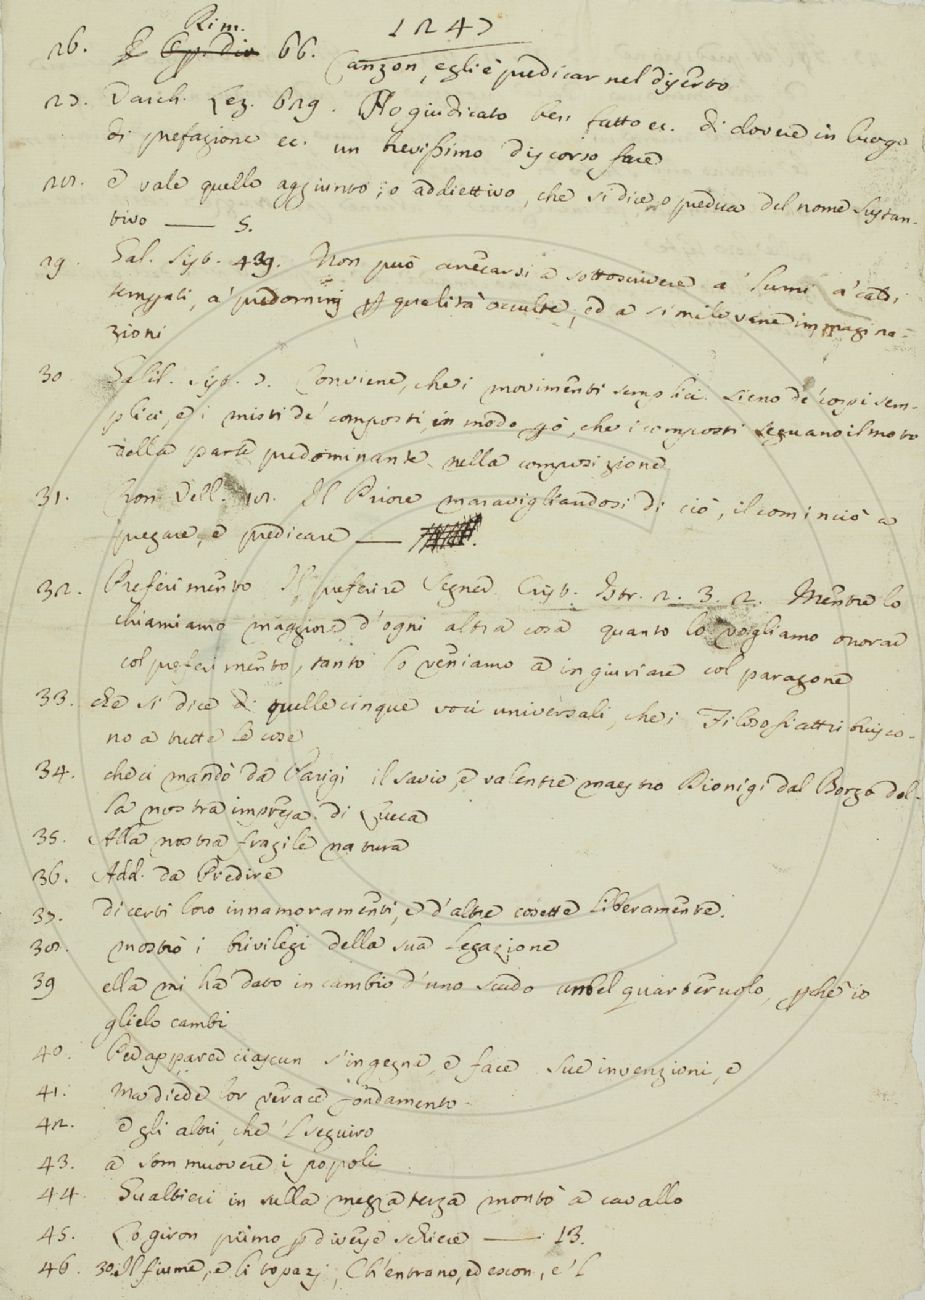 1247
26. E Rim. Ep. div 66. Canzon, egli è predicar nel diserto
27. Varch. Lez. 629. Ho giudicato ben fatto ec. di dovere in luogo
di prefazione ec. un brevissimo discorso fare
28. e vale quello aggiunto, o addiettivo, che si dice, o predica del nome sustan-
tivo — S.
29 Gal. Sist. 439. Non può arrecarsi a sottoscrivere a' lumi a' caldi
temperati, a' predominj p qualità occulte, ed a simili vane immagina-
zioni
30. Galil. Sist. 7. Conviene, che i movimenti semplici sieno de' corpi sem-
plici, e i misti de' composti, in modo però, che i composti seguano il moto
della parte predominante nella composizione
31. Cron. Vell. 18. Il Priore maravigliandosi di ciò, il cominciò a
pregare, e predicare —
32. Preferimento Il preferire Segner. Crist. Istr. 2. 3. 2. Mentre lo
chiamiamo maggiore d'ogni altra cosa quanto lo vogliamo onorar
col preferimento, tanto lo veniamo a ingiuriare col paragone
33. che si dice di quelle cinque voci universali, che i Filosofi attribuisco-
no a tutte le cose
34. che ci mandò da Parigi il savio, e valentre maestro Dionigi dal Borgo del-
la nostra impresa di Lucca
35. Alla nostra fragile natura
36. Add. da Predire
37. di certi loro innamoramenti, e d'altre cosette liberamente.
38. mostrò i brivilegi della sua legazione
39 ella mi ha dato in cambio d'uno scudo un bel quarteruolo, pchè io
glielo cambi
40. Per apparer ciascun s'ingegna, e face sue invenzioni, e
41. Ma diede lor verace fondamento.
42. e gli altri, che 'l seguiro
43. a sommuovere i popoli
44 Gualtieri in sulla mezza terza montò a cavallo
45. Lo giron primo p diverse schiere — 13.
46. 30. Il fiume, e li topazj, Ch'entrano, ed escon, e 'l